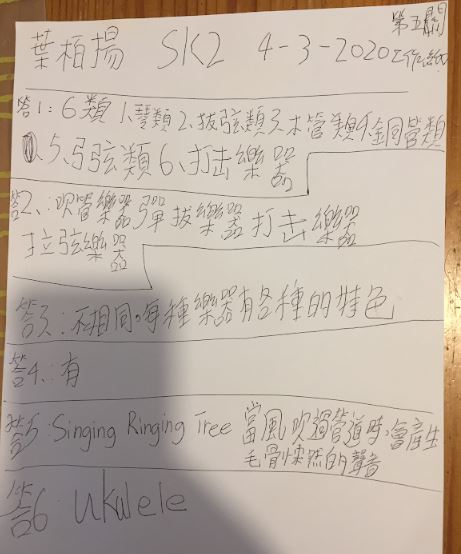 第五關
葉栢揚 SK2 4-3-2020 工作紙
答1:6類 1、琴類 2、拔弦類 3、木管類 4、金同管類
5、弓弦類 6、打击樂器
答2、:吹管樂器 彈拔樂器 打击樂器
拉弦樂器
答3、:不相同。每種樂器有各種的特色
答4、:有
答5:Singing Ringing Tree 當風吹過管道時,會產生
毛骨悚然的聲音
答6:Ukulele